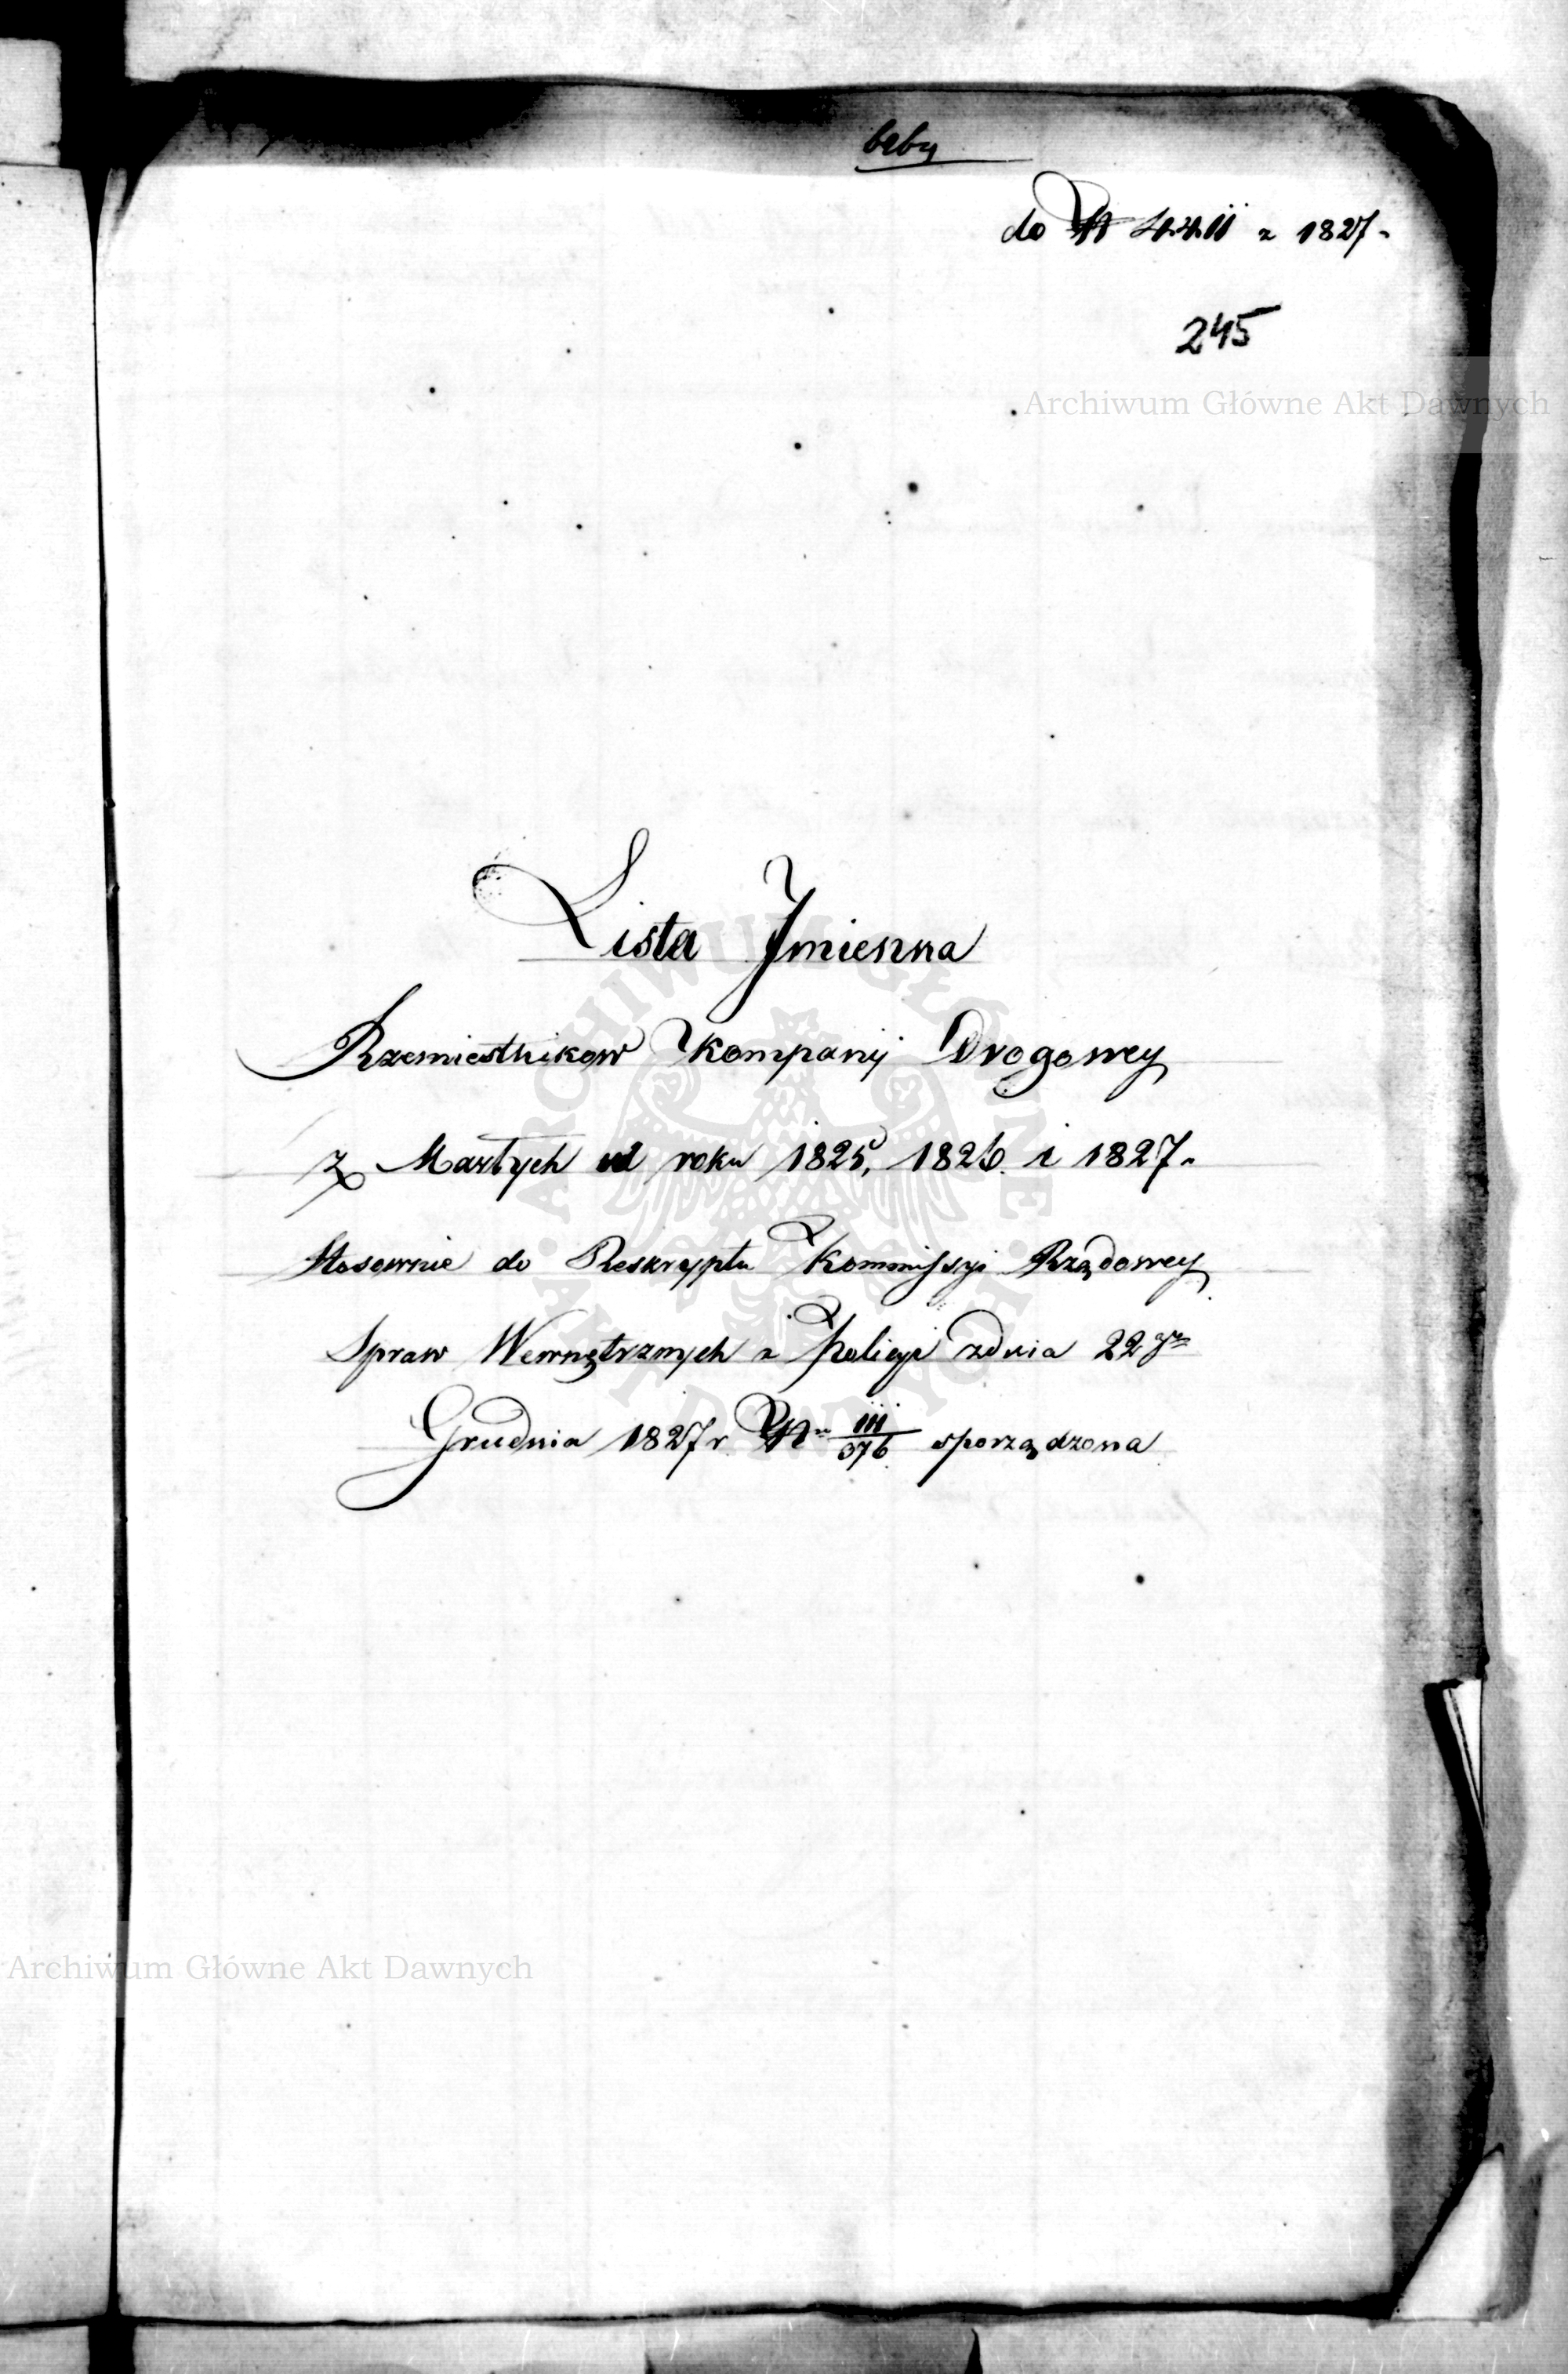 do N 4411 z 1827.
245
Archiwum Główne Akt Dawnych
Lista Jmienna
Rzemieslnikow Kompanij Drogowey
z Marłych od roku 1825, 1826. i 1827.
Stosownie do Reskryptu Kommissyi Rządowey
Spraw Wewnętrznych i Policyi zdnia 22go
Grudnia 1827 r. Nro III/376 sporządzona
Archiwum Główne Akt Dawnych
ARCHIWUM GŁÓWNE AKT DAWNYCH